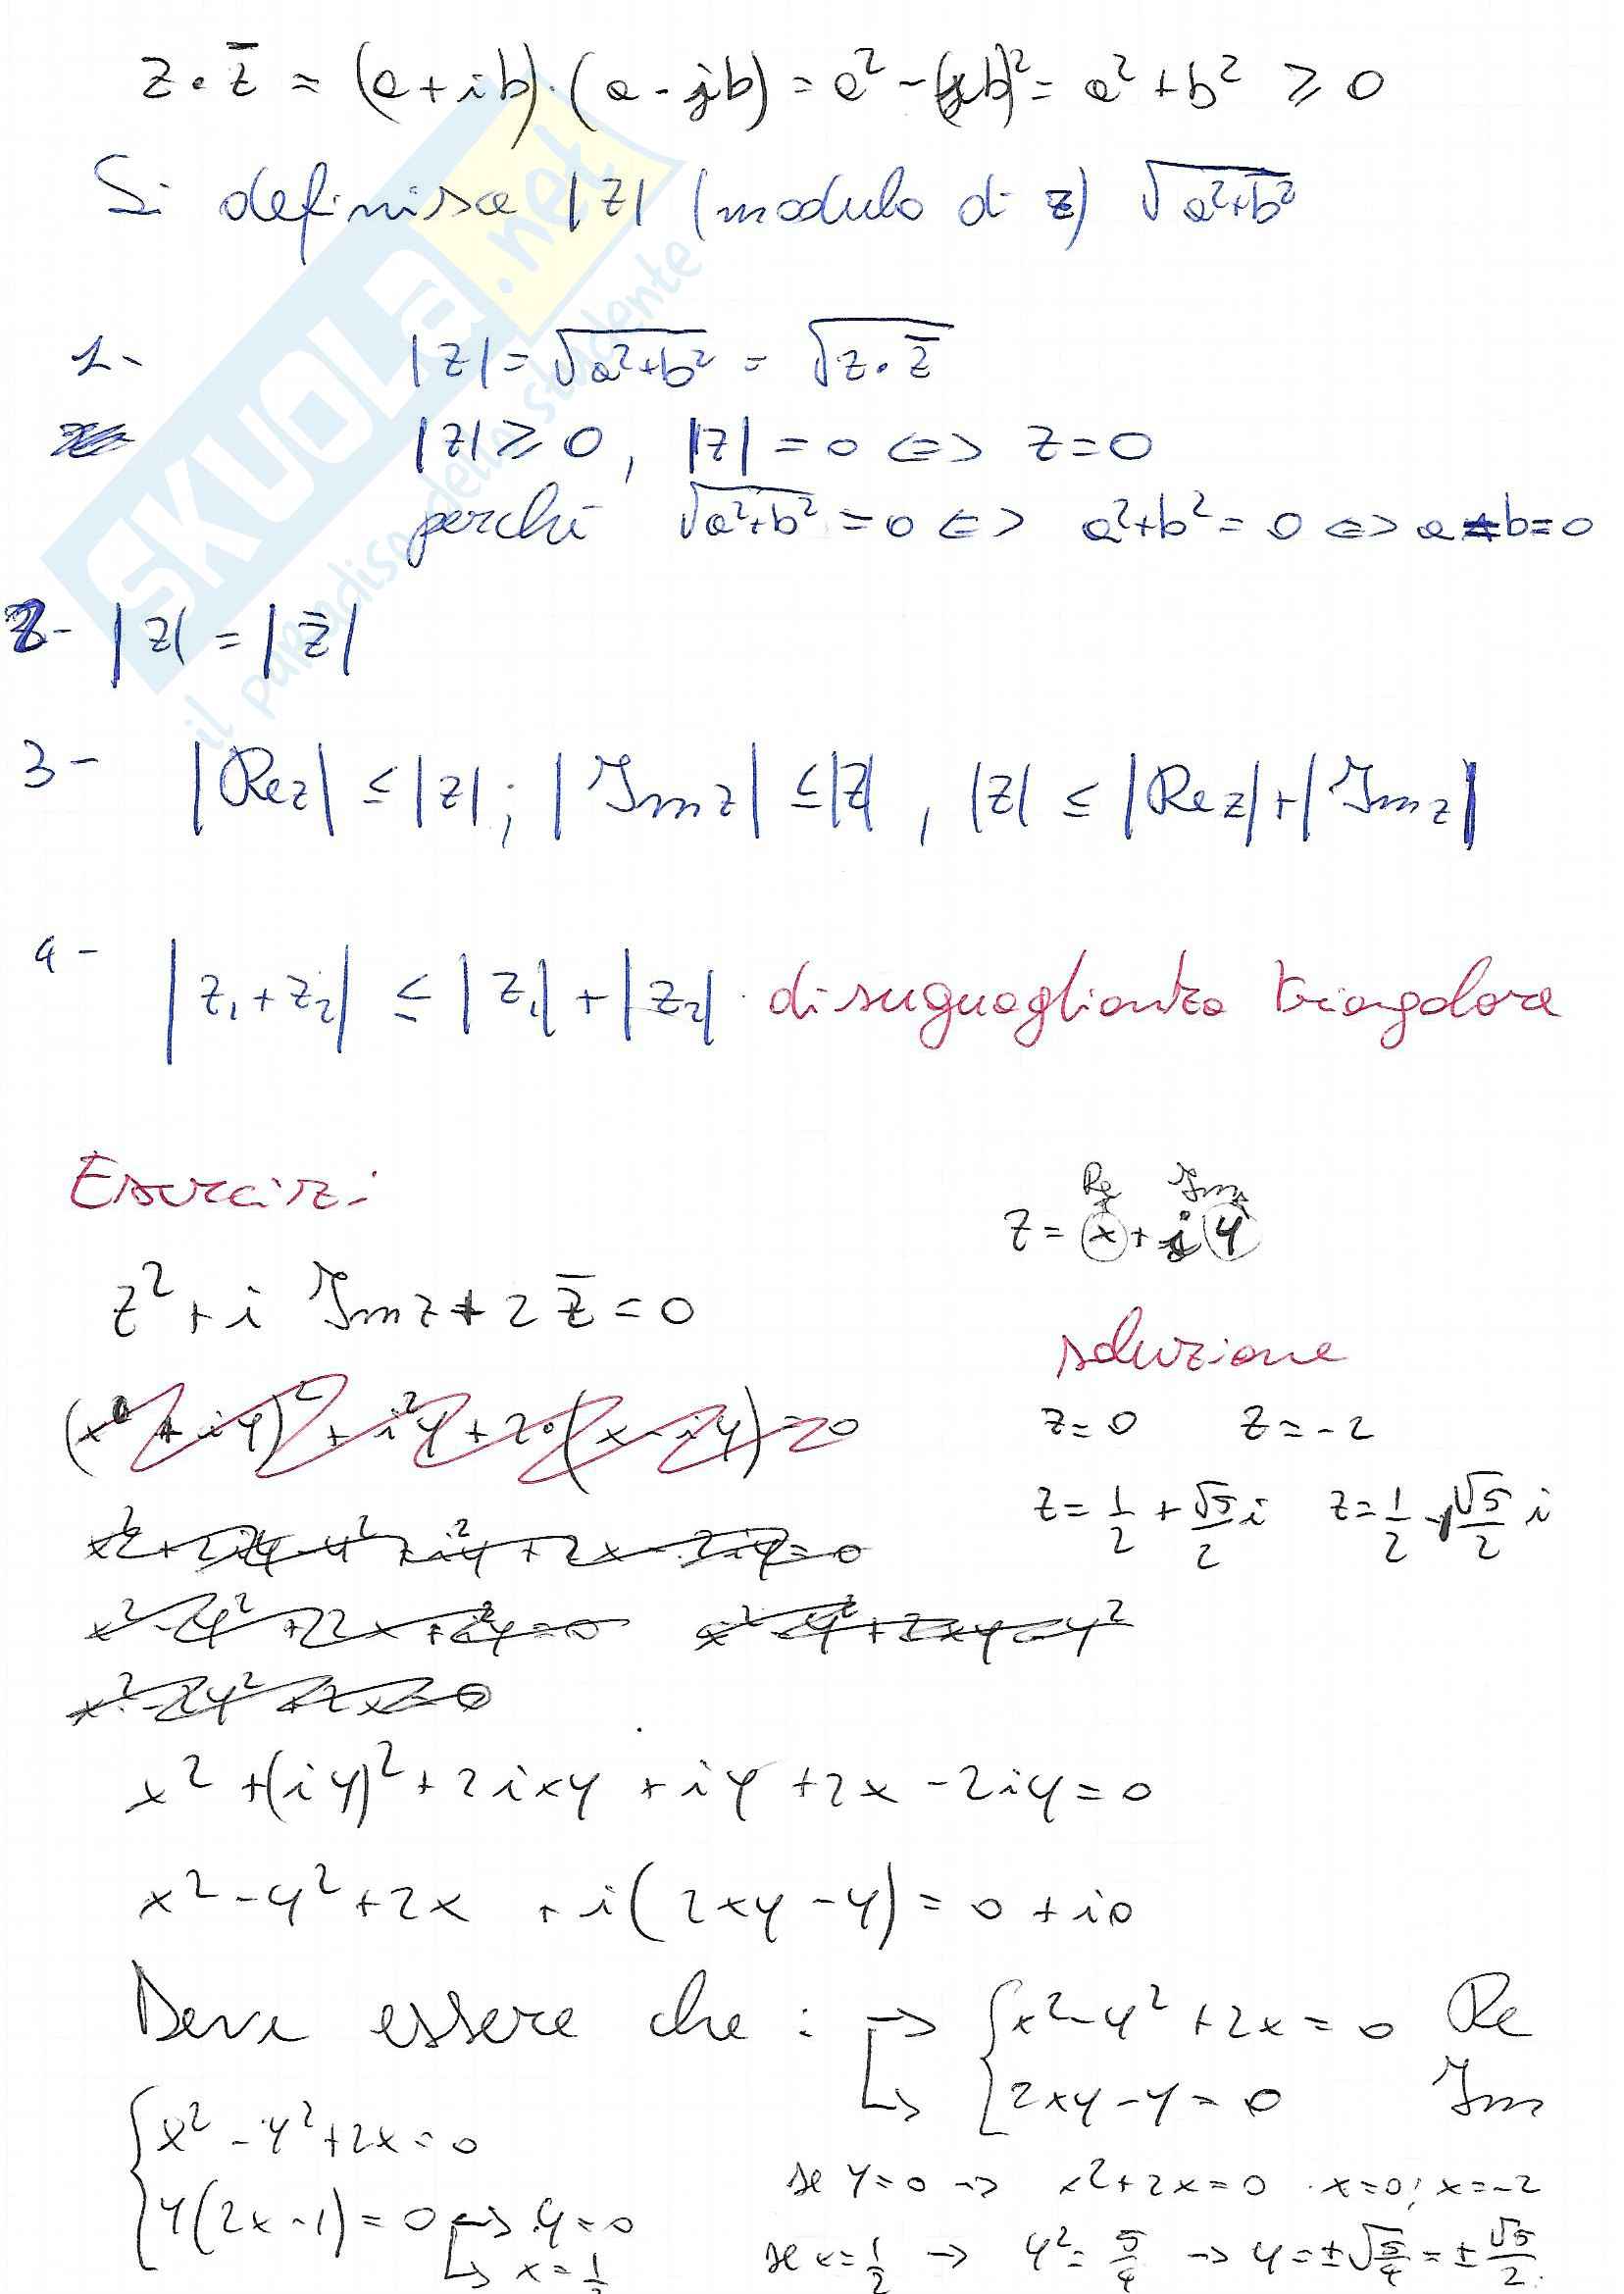 z · z̄ = (a + ib) · (a - ib) = a² - (ib)² = a² + b² ≥ 0
Si definisce |z| (modulo di z) √(a²+b²)
1- |z| = √(a²+b²) = √(z · z̄)
|z| ≥ 0, |z| = 0 <=> z = 0
perché √(a²+b²) = 0 <=> a²+b² = 0 <=> a = b = 0
2- |z| = |z̄|
3- |Re z| ≤ |z| ; |Im z| ≤ |z| , |z| ≤ |Re z| + |Im z|
4- |z₁ + z₂| ≤ |z₁| + |z₂| · disuguaglianza triangolare
Esercizi
Re Im
z = x + i y
z² + i Im z + 2 z̄ = 0
soluzione
(x + iy)² + i²y + 2·(x - iy) = 0
z = 0 z = -2
z = 1/2 + √5/2 i z = 1/2 - √5/2 i
x² + (iy)² + 2ixy + iy + 2x - 2iy = 0
x² - y² + 2x + i(2xy - y) = 0 + i0
Deve essere che : → { x² - y² + 2x = 0 Re
↳ { 2xy - y = 0 Im
{ x² - y² + 2x = 0
{ y(2x - 1) = 0 → y = 0
↳ x = 1/2
se y = 0 → x² + 2x = 0 · x = 0; x = -2
se x = 1/2 → y² = 5/4 → y = ±√(5/4) = ± √5/2.
SKUOLA.net
il paradiso dello studente